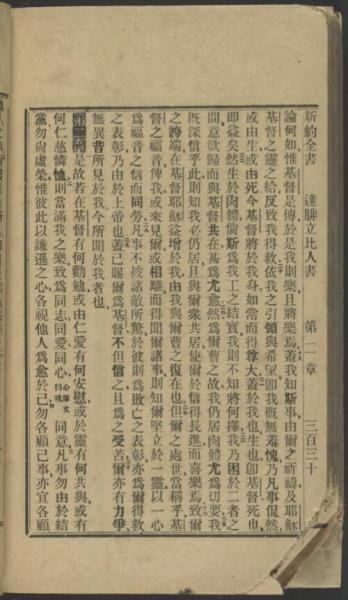 新約全書 達腓立比人書 第二章 三百三十
論何如惟基督是傳於是我則樂且將樂焉蓋我知斯事由爾之祈禱及耶穌
基督之靈之給反致我得救依我之引領與希望卽我槪無羞愧乃凡事侃然
或由生或由死今基督將於我身如常而得尊大蓋於我也生也卽基督死也
卽益矣然生於肉體倘斯爲我工之結實我則不知將何擇我乃困於二者之
間意欲歸而與基督共在甚爲尤愈然爲爾曹之故我仍居肉體尤爲切要我
旣深信乎此則知我必仍居且與爾衆共居使爾於信得長進而喜樂焉致爾
之誇端在基督耶穌益增於我由我與爾曹之復在也但爾之處世當稱乎基
督之福音俾我或來見爾或相離而得聞爾諸事則知爾堅立於一靈以一心
爲福音之信而同勞凡事不被諸敵所驚於彼則爲敗亡之表彰亦爲爾得救
之表彰乃由於上帝也蓋已賜爾爲基督不但信之且爲之受苦爾亦有力爭
無異昔所見於我今所聞於我者也
第二章是故若在基督有何勸勉或由仁愛有何安慰或於靈有何共與或有
何仁慈憐恤則當滿我之樂致爲同志同愛同心心原文曰魂同意凡事勿由於結
黨勿尙虛榮惟彼此以謙遜之心各視他人爲愈於己勿各顧己事亦宜各顧